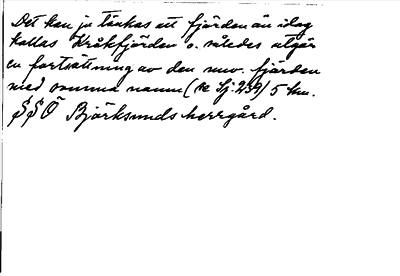 Det kan ju tänkas att fjärden än idag
kallas Kråkfjärden o. således utgör
en fortsättning av den nuv. fjärden
med samma namn (se Lj:239) 5 km.
SSÖ Björksunds herrgård.